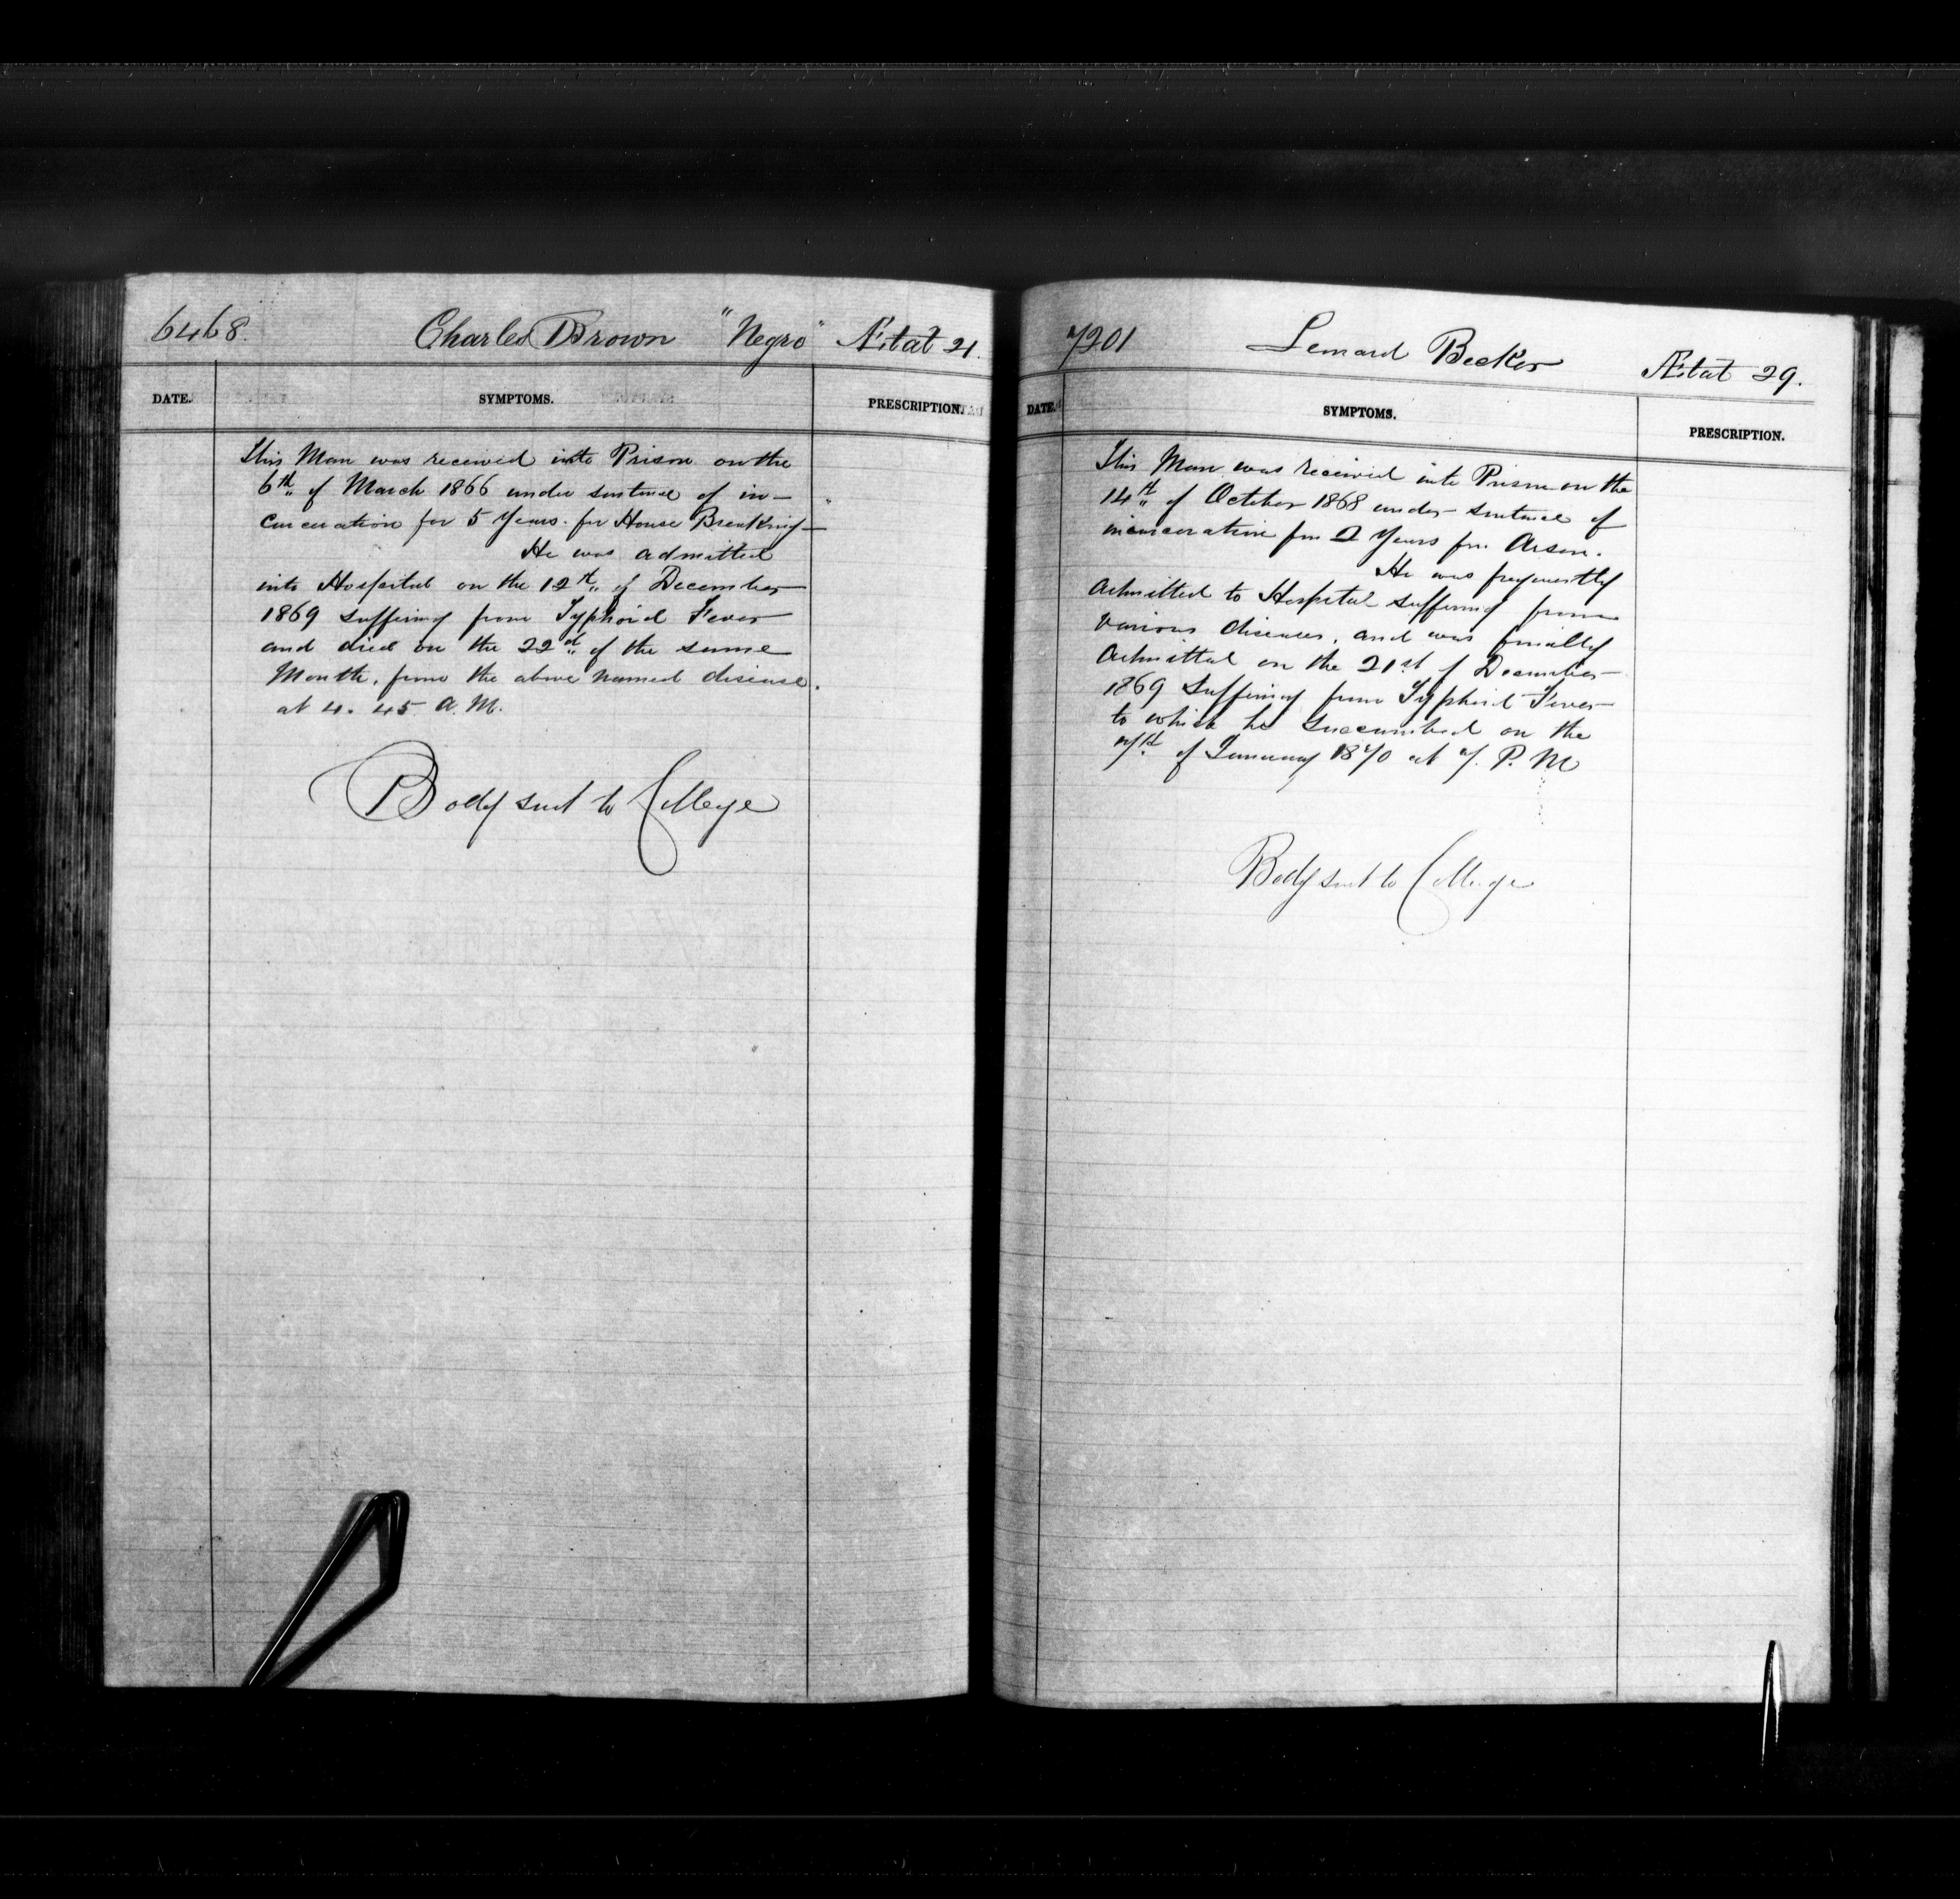 6468. Charles Brown "Negro" Ætat 21.
DATE. SYMPTOMS. PRESCRIPTION.
This Man was received into Prison on the
6th of March 1866 under sentence of in-
carceration for 5 Years. for House Breaking
He was admitted
into Hospital on the 12th of December
1869 suffering from Typhoid Fever
and died on the 22d of the same
Month, from the above named disease.
at 4. 45 A. M.
Body sent to College
7201 Lenard Becker Ætat 29.
DATE. SYMPTOMS. PRESCRIPTION.
This Man was received into Prison on the
14th of October 1868 under sentence of
incarceration for 2 Years for Arson.
He was frequently
Admitted to Hospital suffering from
various diseases, and was finally
Admitted on the 21st of December
1869 suffering from Typhoid Fever
to which he succumbed on the
7th of January 1870 at 7. P. M
Body sent to College